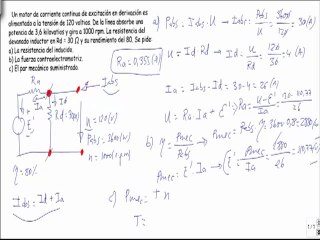 Un motor de corriente continua de excitación en derivación es
alimentado a la tensión de 120 voltios. De la línea absorbe una
potencia de 3,6 kilovatios y gira a 1000 rpm. La resistencia del
devanado inductor en Rd = 30 Ω y su rendimiento del 80, Se pide
a) La resistencia del inducido.
b) La fuerza contraelectromotriz.
c) El par mecánico suministrado.
Ra = 0,353 (Ω)
a) Pabs = Iabs · U → Iabs = Pabs/U = 3600/120 = 30 (A)
U = Id Rd → Id = U/Rd = 120/30 = 4 (A)
Ia = Iabs - Id = 30 - 4 = 26 (A)
U = Ra Ia + E'
b) η = Pmec/Pabs → Pmec = Pabs
Pmec = E' · Ia → E' = Pmec/Ia
Ra
Iabs
Ia
Id
E'
η = 80%
Iabs = Id + Ia
c) Pmec = T · n
T =